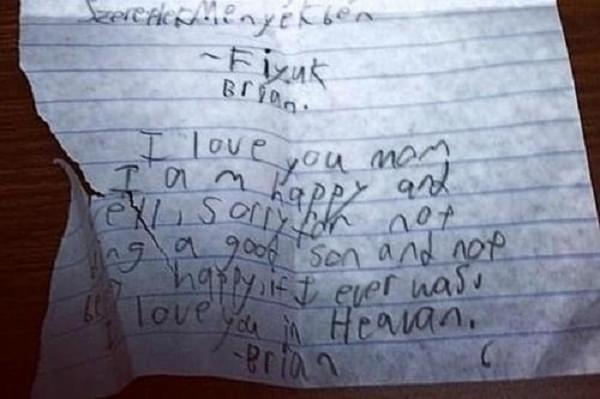 SzeretlekMenyékben
~Fiyuk
Brian.
I love you mom
I am happy and
ell, sorry for not
ing a good son and not
happy, if I ever was.
I love you in Heavan.
-Brian